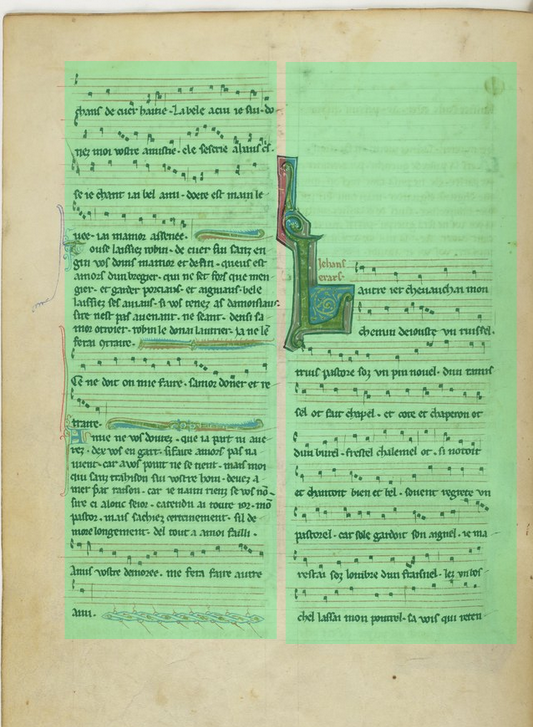 chans de cuer haitie. La bele aciu ie sui. do
nez moi vostre amistie. ele sescrie aimis cs.
se ie chant iai bel ami. doete est main le
uee. iai mamor assenee.
ouse laissiez robin. de cuer sui sanz en
gin vos doins mamor et desin. queus est
amors dun bregier. qui ne set fors que men
gier. et garder porciaus. et aigniaus. bele
laissiez ses auiaus. si vos tenez as damoisiaus.
sire nest pas auenant. ne seant. densi sa
mor otroier. robin le donai lautrier. ia ne le
ferai
Ce ne doit on mie faire. samor doner et re
traire.
mie ne vos doutez. que ia part ni aue
rez. dex vos en gart. si faite amors pas na
uient. car a vos point ne se tient. mais moi
qui sanz traison sui vostre hom. deuez a
mer par raison. car ie naim rien se vos nō.
sire ci alonc seior. catendu ai toute ior. mō
pastor. mais sachiez certeinement. sil de
more longement. del tout a amoi failli.
Amis vostre demoree. me fera faire autre
ami.
Iehans
erars.
autre ier cheuauchai mon
chemin deiouste vn ruissel.
truis pastore soz vn pin nouel. dun ramis
sel ot fait chapel. et cote et chaperon ot
dun burel. frestel chalemel ot. si notoit
et chantoit bien et bel. souent regrete vn
pastorel. car sole gardoit son aignel. ie ma
restai soz lombre dun fraisnel. lez vn
chel lassai mon poutrel. sa vois qui reten